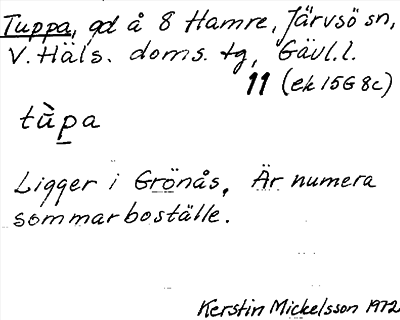 Tuppa, gd å 8 Hamre, Järvsö sn,
V. Häls. doms. tg, Gävl. l.
11 (ek 15G 8c)
tùpa
Ligger i Grönås. Är numera
sommarboställe.
Kerstin Mickelsson 1972